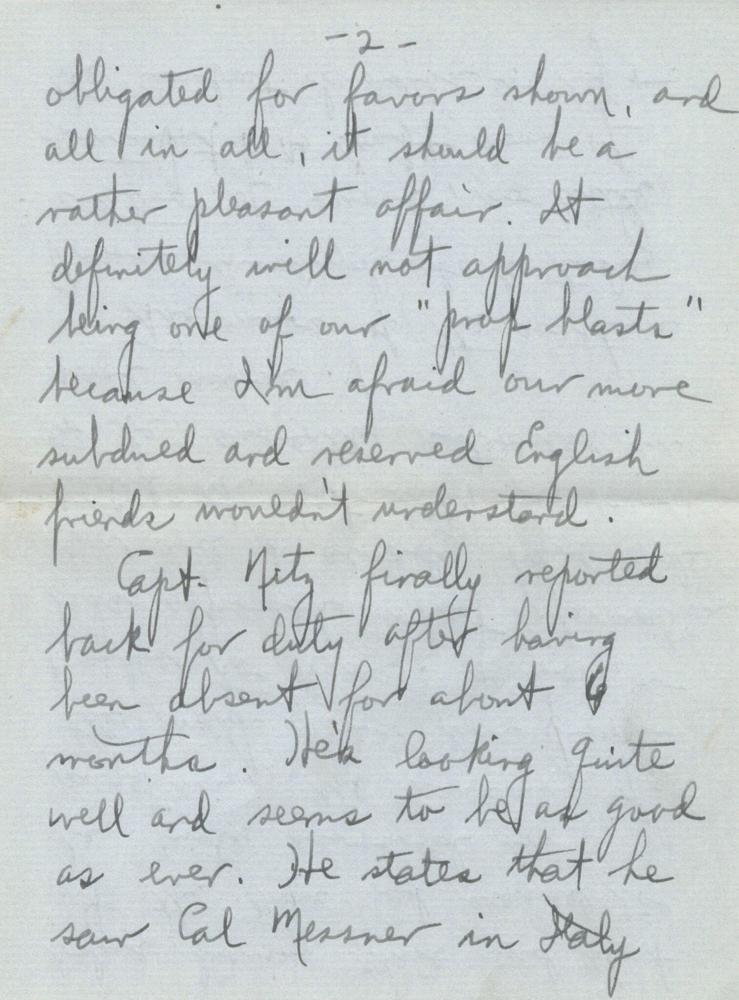 -2-
obligated for favors shown, and
all in all, it should be a
rather pleasant affair. It
definitely will not approach
being one of our "prop blasts"
because I'm afraid our more
subdued and reserved English
friends wouldn't understand.
Capt. Nitz finally reported
back for duty after having
been absent for about 6
months. He's looking quite
well and seems to be as good
as ever. He states that he
saw Cal Messner in Italy